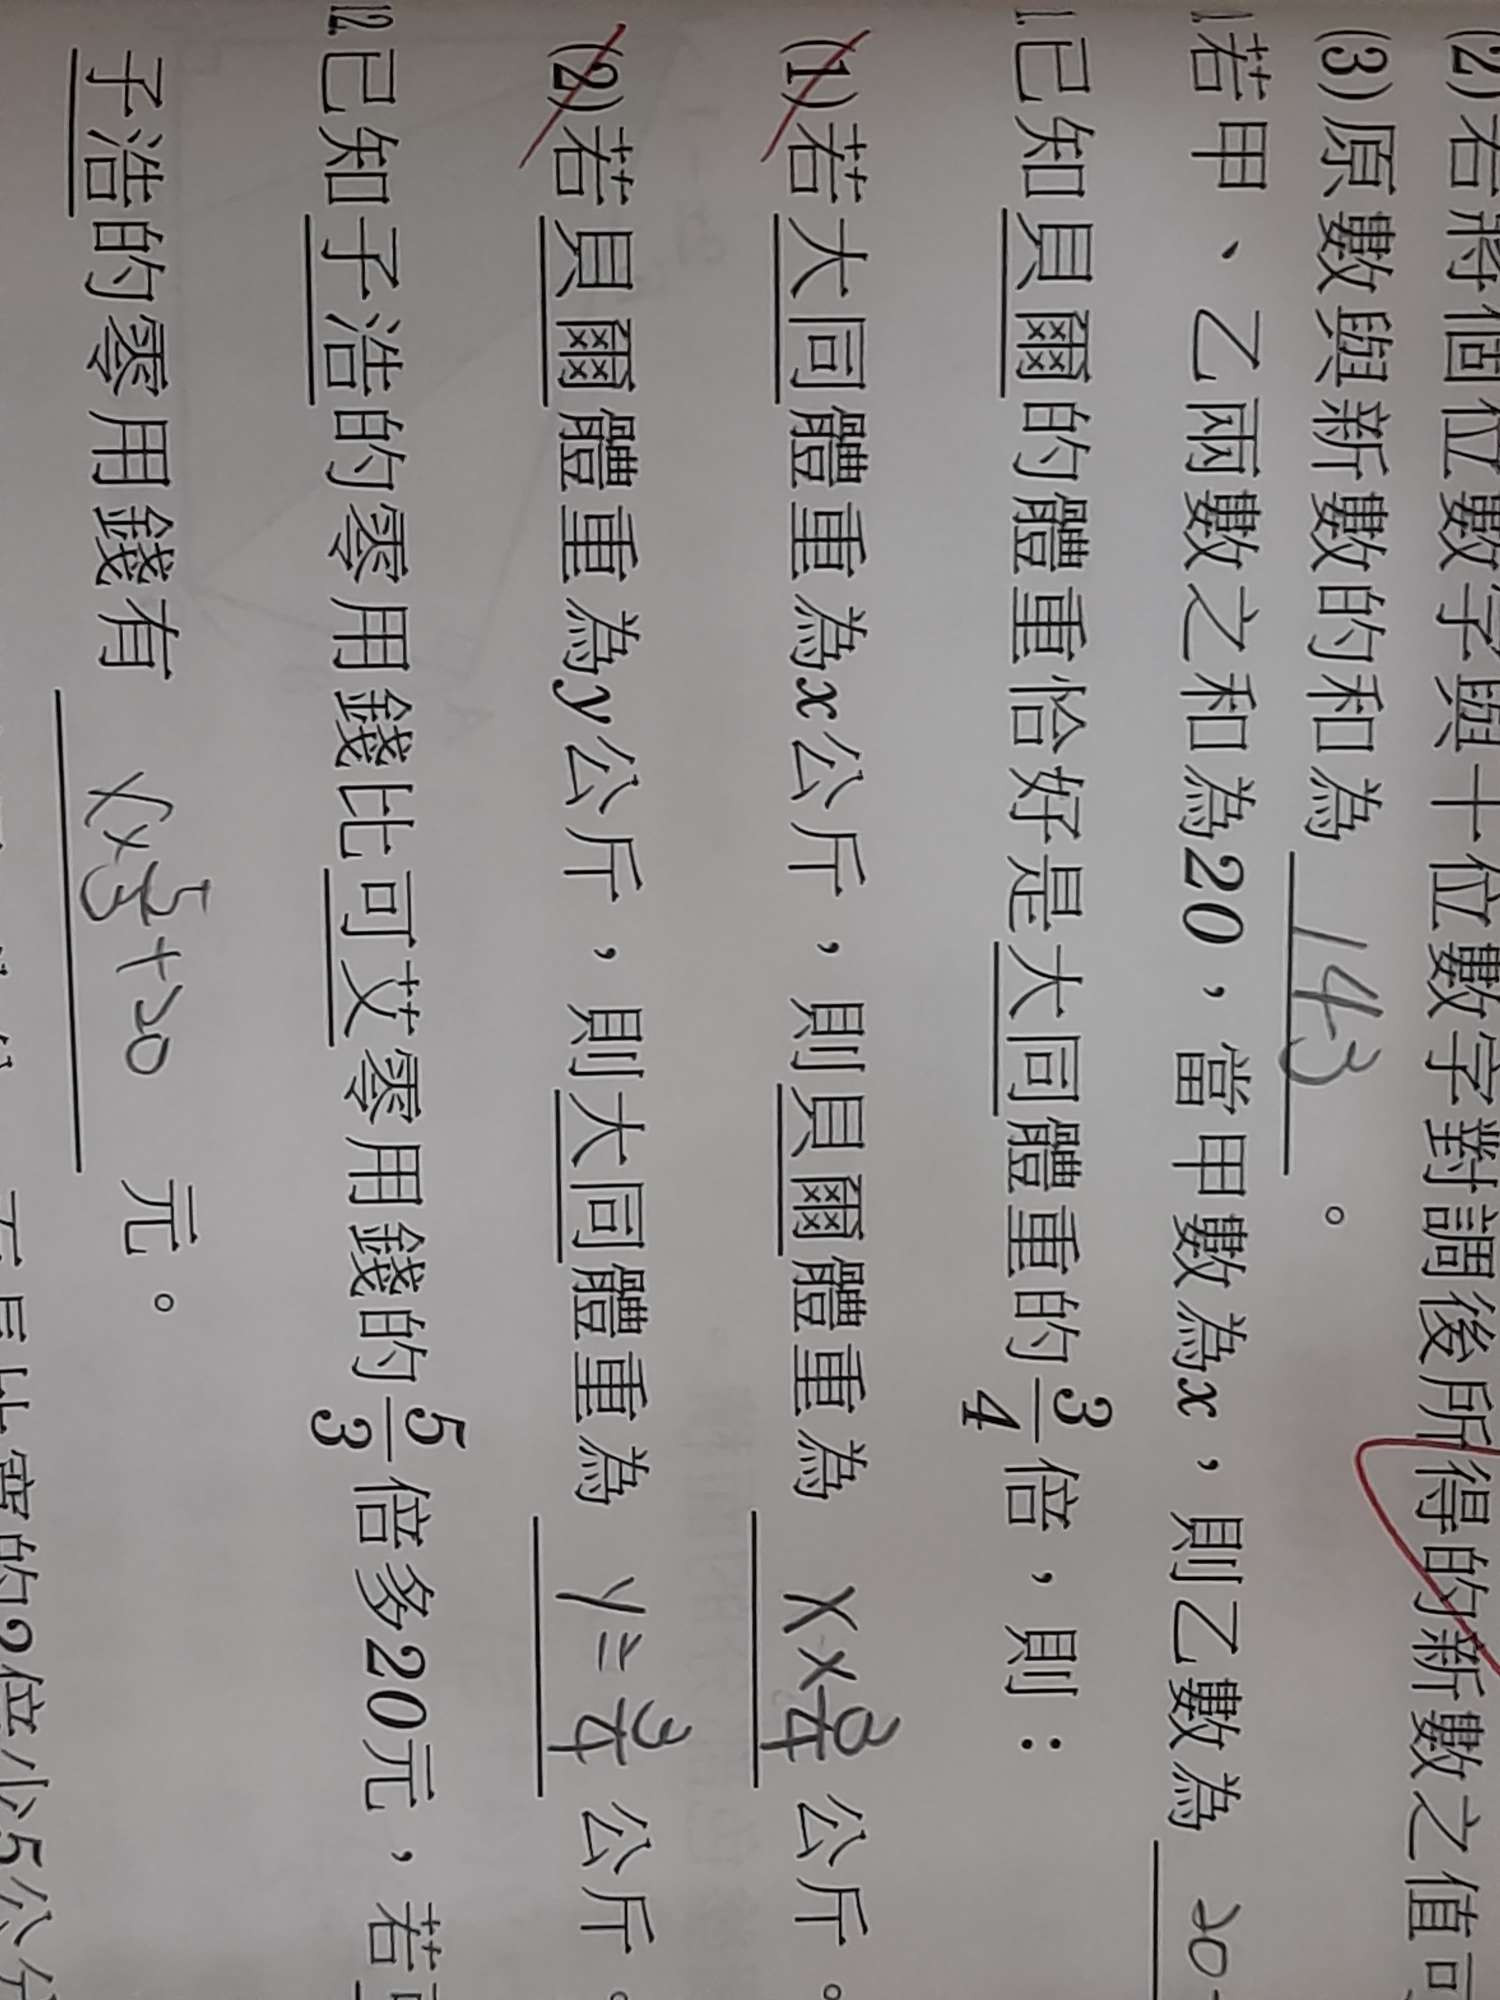 (2)若將個位數字與十位數字對調後所得的新數之值
(3)原數與新數的和為 143 。
若甲、乙兩數之和為20，當甲數為x，則乙數為 20
1.已知貝爾的體重恰好是大同體重的3/4倍，則：
(1)若大同體重為x公斤，則貝爾體重為 x×3/4 公斤。
(2)若貝爾體重為y公斤，則大同體重為 y÷3/4 公斤。
12.已知子浩的零用錢比可艾零用錢的5/3倍多20元，若
子浩的零用錢有 x×5/3+20 元。
的2倍少5公分